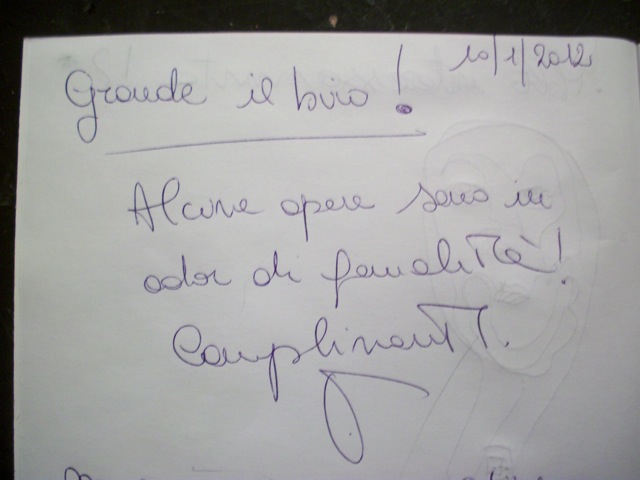 10/1/2012
Grande il biro!
Alcune opere sono in
odor di genialità!
Complimenti.